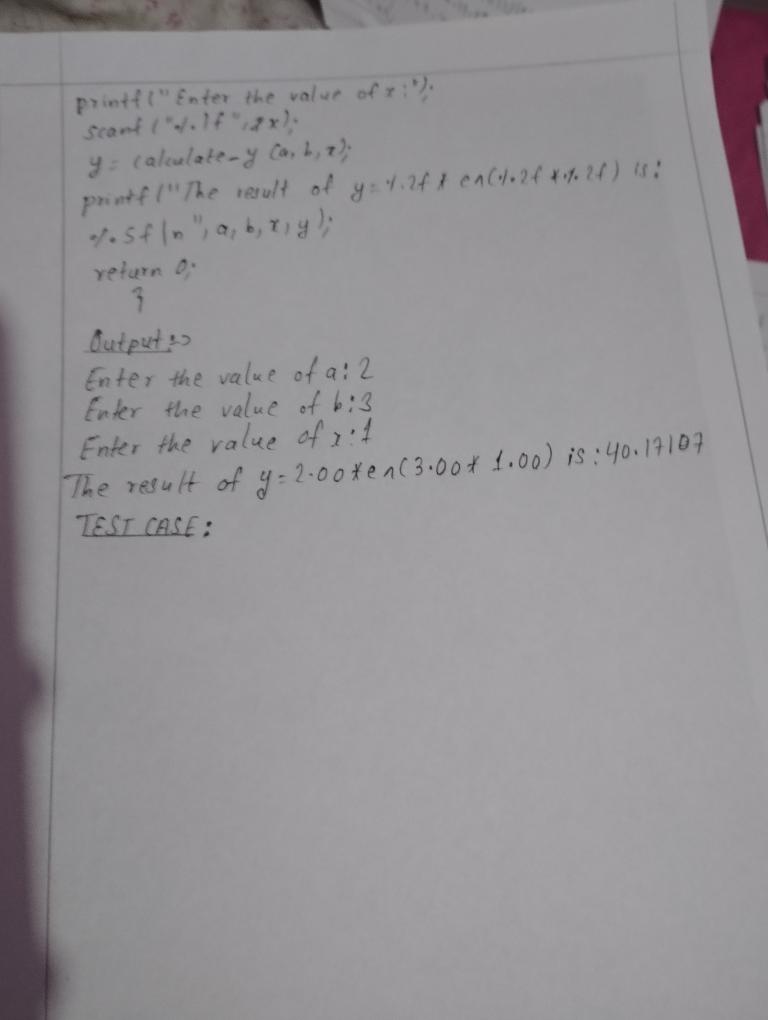 printf("Enter the value of x:");
scanf ("%.lf",&x);
y = calculate-y (a, b, x);
printf ("The result of y=%.2f * e^(%.2f *%.2f) is:
%.5f\n", a, b, x, y);
return 0;
}
Output:->
Enter the value of a: 2
Enter the value of b:3
Enter the value of x:1
The result of y=2.00*e^(3.00* 1.00) is:40.17107
TEST CASE: